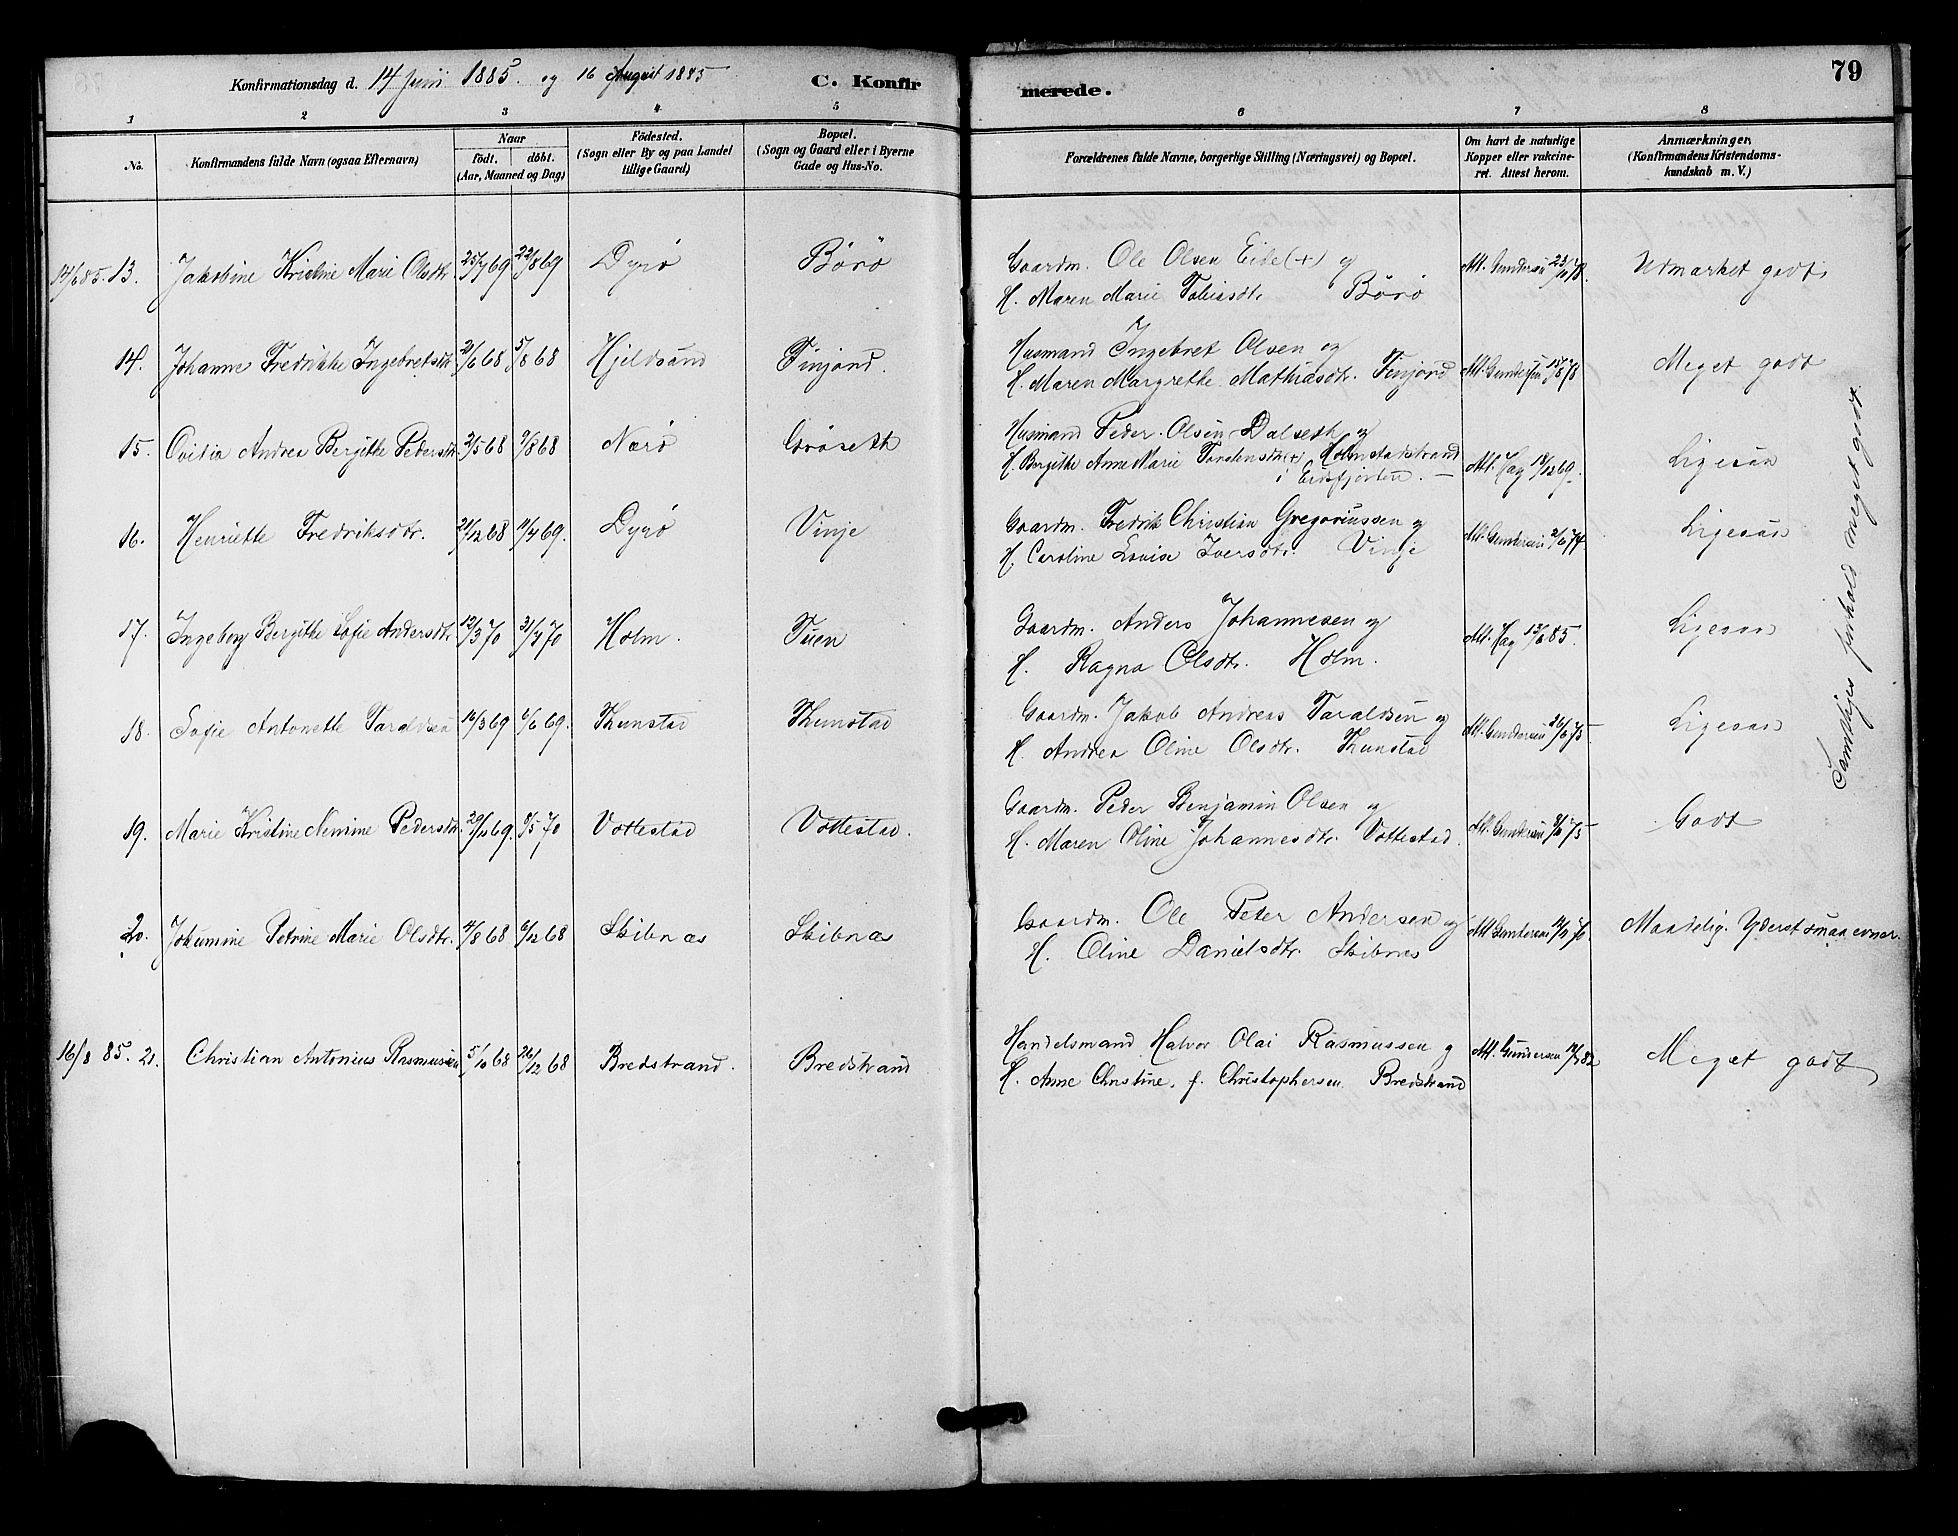 Konfirmationsdag d. 14 Juni 1885 og 16 August 1885 C. Konfirmerede. 79
1 2 3 4 5 6 7 8
No. Konfirmandens fulde Navn (ogsaa Efternavn) Naar födt. döbt. (Aar, Maaned og Dag) Födested. (Sogn eller By og paa Landet tillige Gaard) Bopæl. (Sogn og Gaard eller i Byerne Gade og Hus-No. Forældrenes fulde Navne, borgerlige Stilling (Næringsvei) og Bopæl. Om havt de naturlige Kopper eller vakcineret. Attest herom. Anmærkninger. (Konfirmandens Kristendomskundskab m. V.)
14/6 85. 13. Jakobine Kristine Marie Olsdtr. 25/7 69 22/8 69 Dyrö Börö Gaardm. Ole Olsen Eide (+) og
H. Maren Marie Tobiasdtr. Börö Att. Gundersen Udmærket godt
14. Johanne Fredrikke Ingebretsdtr. 21/6 68 5/8 68 Hjeldsund Finjord. Husmand Ingebret Olsen og
H. Maren Margrethe Mathiasdtr. Finjord Att. Gundersen Meget godt
15. Andrea Bergitte Pedersdtr. 2/5 68 9/8 68 Nærö Gröseth Husmand Peder Olsen Dalseth og
H. Bergitte Anne Marie Holmstadstrand
i Eidsfjorden. Att. Hag 18/12 69. Ligesaa
16. Henriette Fredriksdtr. 21/12 68 11/4 69. Dyrö Vinje Gaardm. Fredrik Christian Gregoriussen og
H. Caroline Lovise Iversdtr. Vinje Att. Gundersen Ligesaa
17. Ingeborg Bergitte Sofie Andersdtr. 12/3 70 31/7 70 Holm. Tuen Gaardm. Anders Johannesen og
H. Ragna Olsdtr. Holm. Att. Hag 13/6 85. Ligesaa
18. Sofie Antonette Taraldsen 16/3 69 6/6 69. Kunstad Kunstad Gaardm. Jakob Andreas Taraldsen og
H. Andrea Oline Olsdtr. Kunstad Att. Gundersen 26/6 75 Ligesaa
19. Marie Kristine Nemine Pedersdtr. 29/11 69. 8/5 70 Vottestad Vottestad. Gaardm. Peder Benjamin Olsen og
H. Maren Oline Johannesdtr. Vottestad. Att. Gundersen Godt
20. Johanmine Petrine Marie Olsdtr. 4/8 68 6/12 68 Skibnæs Skibnæs Gaardm. Ole Peter Andersen og
H. Oline Danielsdtr. Skibnæs Att. Gundersen Maadelig. Yderst smaa evner.
16/8 85. 21. Christian Antonius Rasmussen 5/10 68 26/12 68 Bredstrand. Bredstrand Handelsmand Halvor Olai Rasmussen og
H. Anne Christine, f. Christophersen Bredstrand Att. Gundersen Meget godt
Samtliges forhold meget godt.